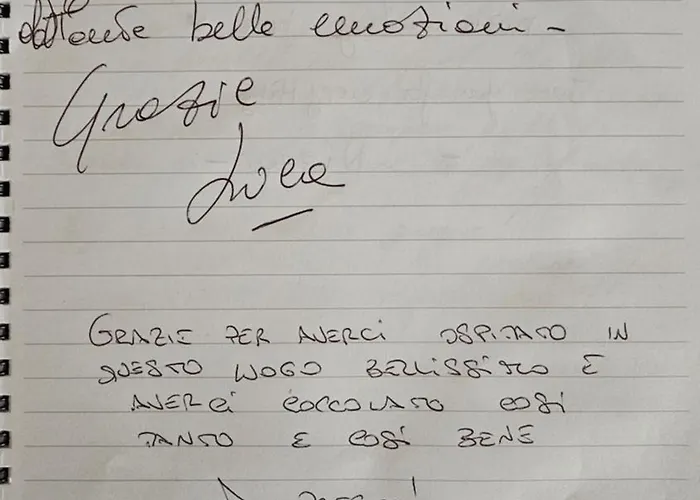 belle emozioni -
Grazie
Luca
GRAZIE PER AVERCI OSPITATO IN
QUESTO LUOGO BELLISSIMO E
AVERCI COCCOLATO COSÌ
TANTO E COSÌ BENE